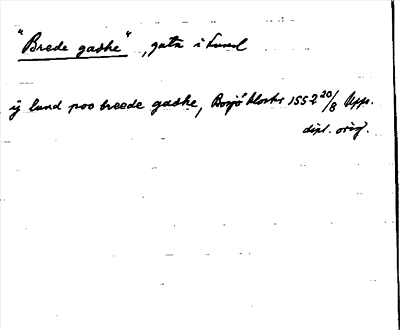 "Brede gaske", gata i Lund
ij lund poo breede gaske, Bosjökloster 1552 20/8 Upp.
dipl. orig.